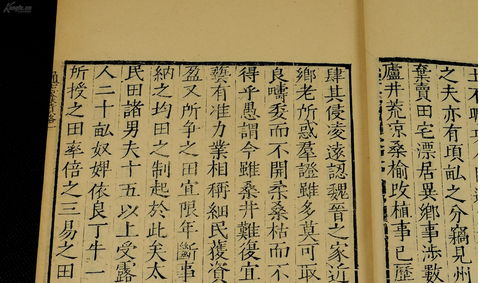 之夫亦有頃畝之分竊見州
棄賣田宅漂居異鄉事涉數
廬井荒涼桑榆改植事已歷
肆其使淩遠認魏晉之家近
鄉老所惑羣證雖多莫可取
良疇委而不開柔桑枯而不
得乎愚謂今雖桑井難復宜
藝有准力業相稱細民獲資
盈又所爭之田宜限年斷事
納之均田之制起於此矣太
民田諸男夫十五以上受露
人二十畝奴婢依良丁牛一
所授之田率倍之三易之田